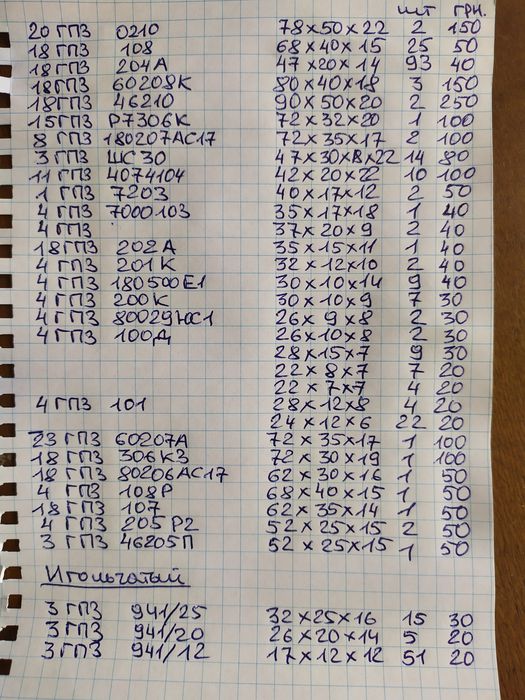 шт ГРН.
20 ГПЗ 0210 78×50×22 2 150
18 ГПЗ 108 68×40×15 25 50
18 ГПЗ 204А 47×20×14 93 40
18 ГПЗ 60208К 80×40×18 3 150
18 ГПЗ 46210 90×50×20 2 250
15 ГПЗ Р7306К 72×32×20 1 100
8 ГПЗ 180207АС17 72×35×17 2 100
3 ГПЗ ШС30 47×30×В×22 14 80
11 ГПЗ 4074104 42×20×22 10 100
1 ГПЗ 7203 40×17×12 2 50
4 ГПЗ 7000103 35×17×18 1 40
4 ГПЗ 37×20×9 2 40
18 ГПЗ 202А 35×15×11 1 40
4 ГПЗ 201К 32×12×10 2 40
4 ГПЗ 180500Е1 30×10×14 9 40
4 ГПЗ 200К 30×10×9 7 30
4 ГПЗ 80029ЮС1 26×9×8 2 30
4 ГПЗ 100Д 26×10×8 2 30
28×15×7 9 30
22×8×7 7 20
22×7×7 4 20
4 ГПЗ 101 28×12×8 4 20
24×12×6 22 20
23 ГПЗ 60207А 72×35×17 1 100
18 ГПЗ 306КЗ 72×30×19 1 100
18 ГПЗ 80206АС17 62×30×16 1 50
4 ГПЗ 108Р 68×40×15 1 50
18 ГПЗ 107 62×35×14 1 50
4 ГПЗ 205Р2 52×25×15 2 50
3 ГПЗ 46205П 52×25×15 1 50
Игольчатый
3 ГПЗ 941/25 32×25×16 15 30
3 ГПЗ 941/20 26×20×14 5 20
3 ГПЗ 941/12 17×12×12 51 20